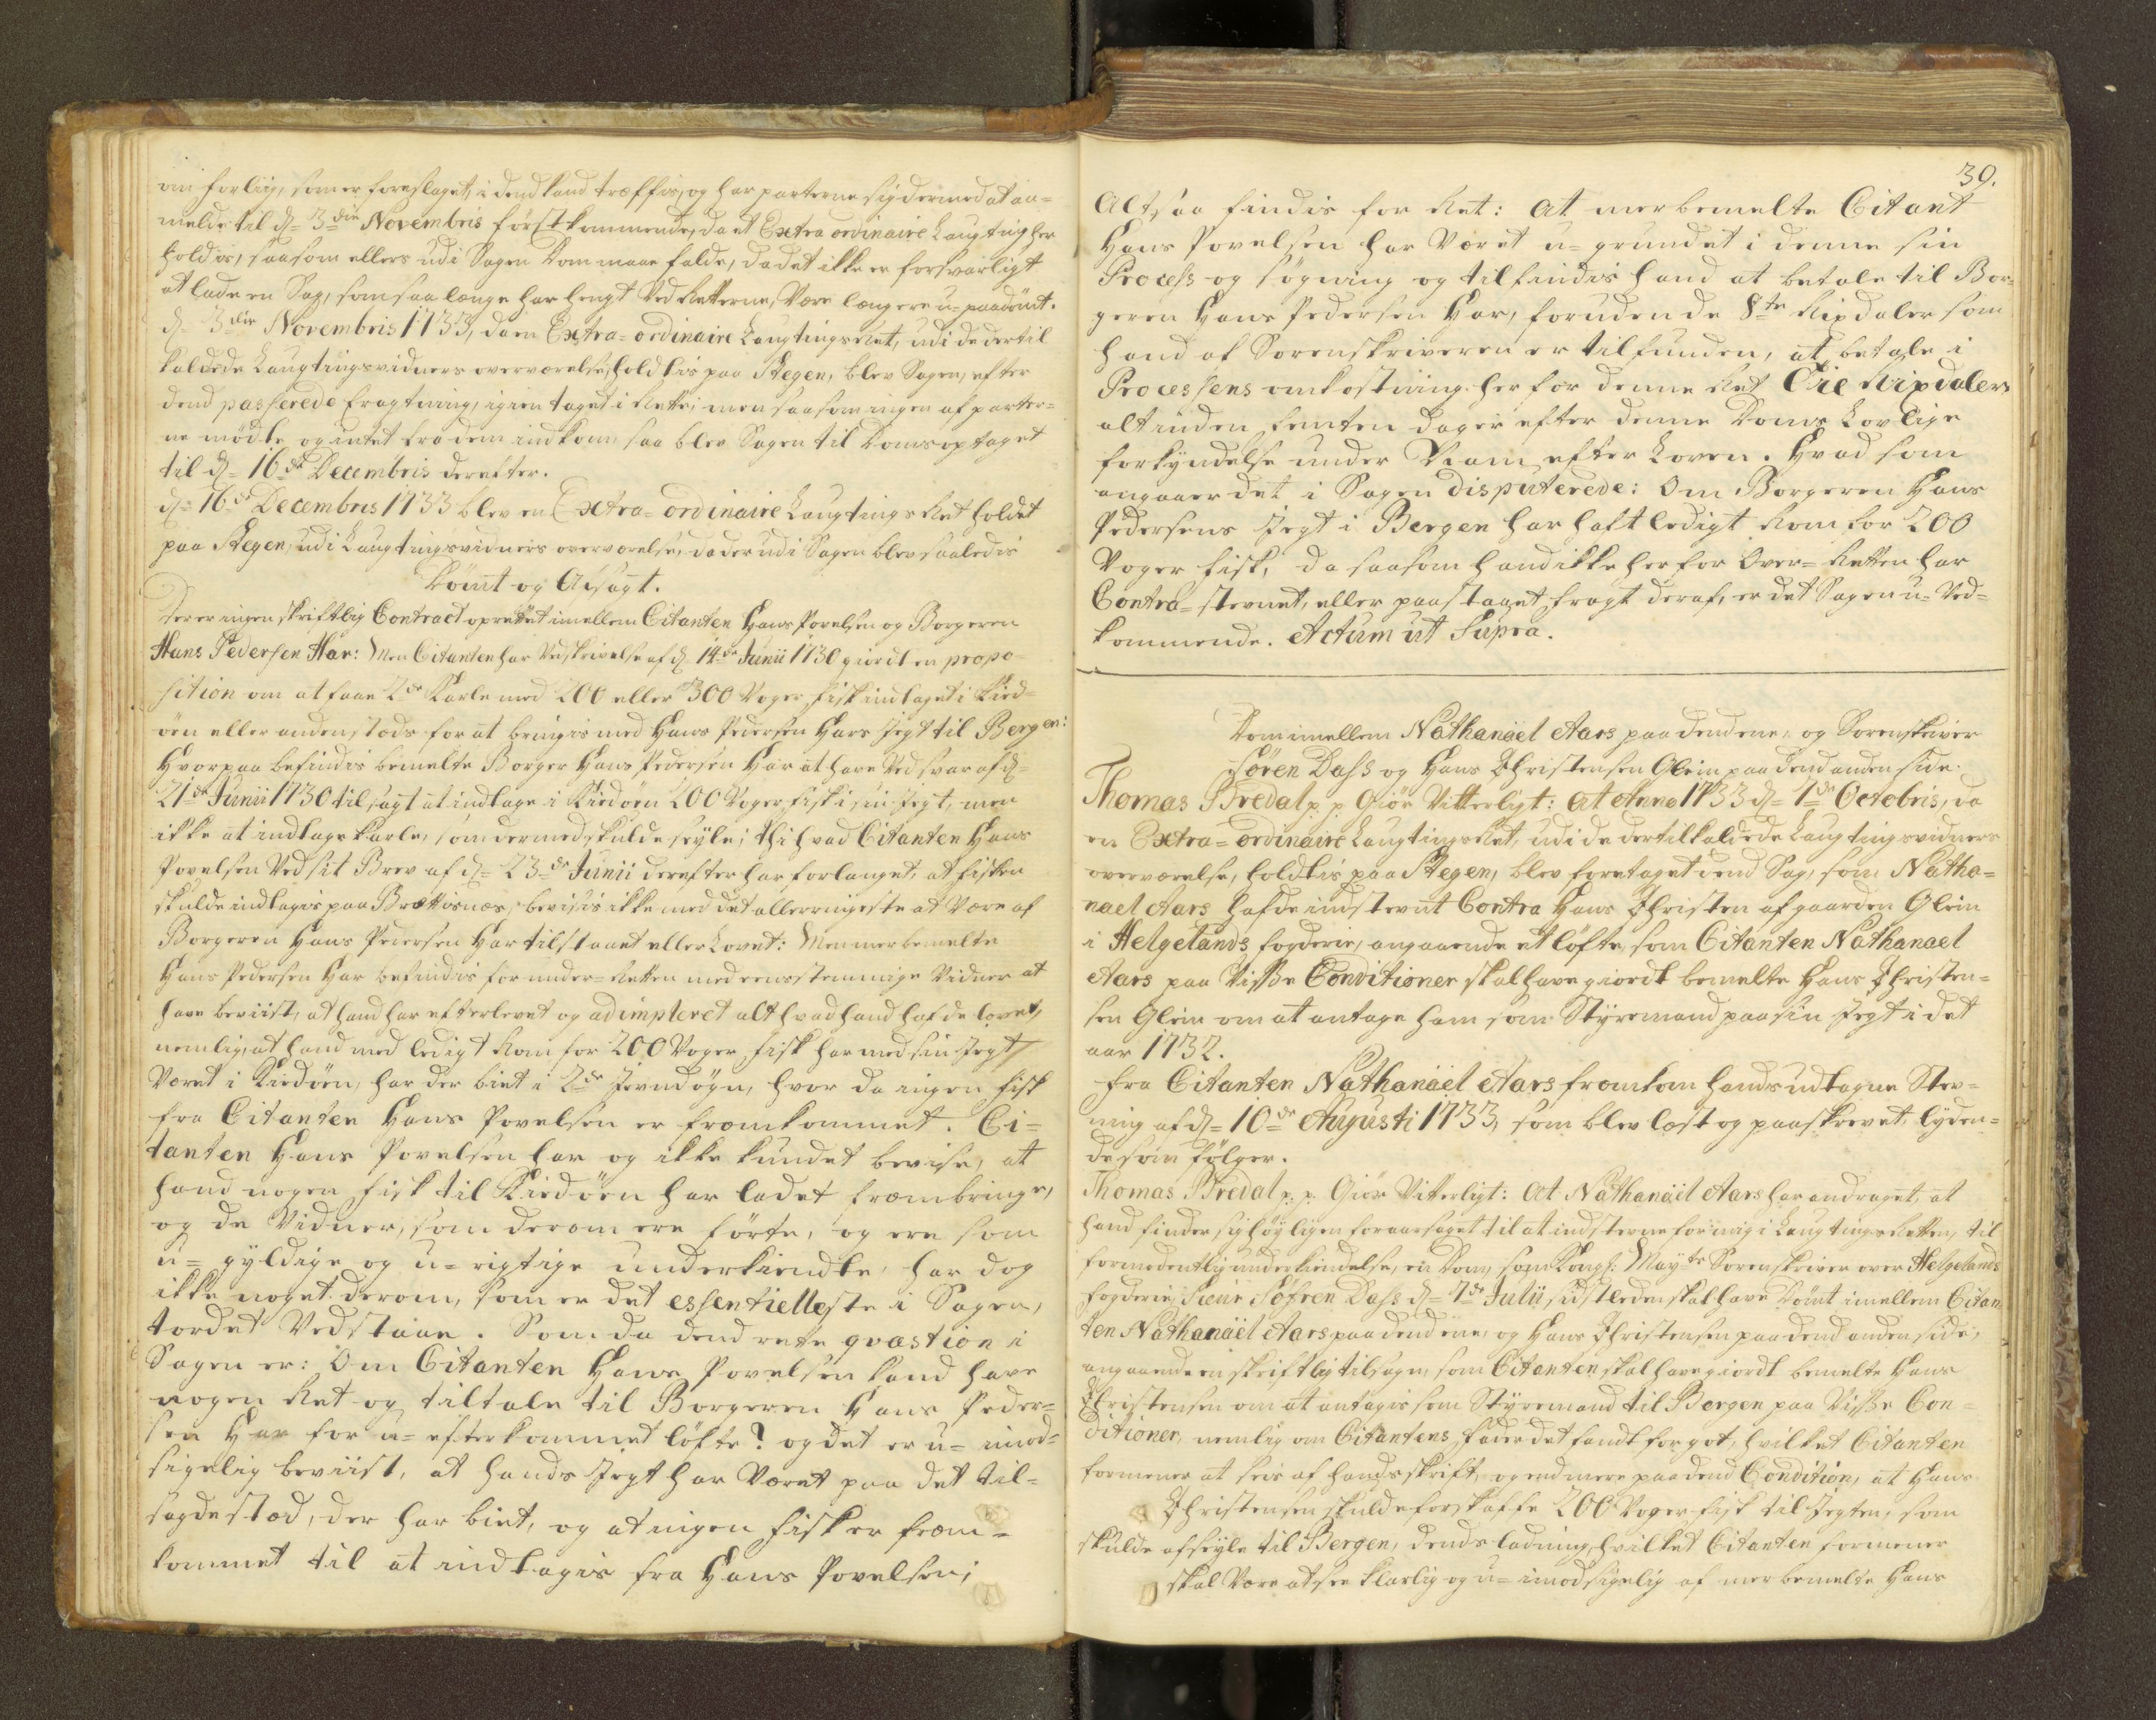 om forliig, som er foreslaget, i dend kand træffis, og har parterne sig dermed at an=
melde til d= 3die Novembris först kommende, da et Extra ordinaire Laugting her
holdis, saasom ellers udi Sagen Dom maae falde, da det ikke er forsvarligt
at lade en Sag, som saa længe har hengt Ved Retterne, Være længere u=paadömt.
d= 3die Novembris 1733, da en Extra=ordinaire Laugtings Ret, udi de dertil
kaldede Laugtingsvidners overværelse, holdtis paa Stegen, blev Sagen, efter
dend passerede fragtning, igien taget i Rette; men saasom ingen af parter=
ne mödte, og intet fra dem indkom, saa blev Sagen til Doms optaget
til d= 16de Decembris derefter.
d= 16de Decembris 1733 blev en Extra=ordinaire Laugtings Ret holdet
paa Stegen, udi Laugtingsvidners overværelse, da der udi Sagen blev saaledis
Dömt og Afsagt.
Der er ingen skriftlig Contract oprettet imellem Citanten Hans Povelsen og Borgeren
Hans Pedersen Har: Men Citanten har Ved skrivelse af d. 14de Junii 1730 giordt en propo
sition om at faae 2de Karle med 200 eller 300 Voger fisk indtaget i Kied=
öen eller andenstæds for at bringis med Hans Pedersen Hars Jegt til Bergen:
Hvorpaa befindis bemelte Borger Hans Pedersen Har at have Ved svar af d=
21de Junii 1730 tilsagt at indtage i Kiedöen 200 Voger fisk i sin Jegt, men
ikke at indtage karle, som dermed skulde seyle; thi hvad Citanten Hans
Povelsen Ved sit Brev af d= 23de Junii derefter har forlanget, at fisken
skulde indtagis paa Brættisnæs, bevisis ikke med det allerringeste at Være af
Borgeren Hans Pedersen Har tilstaaet eller Lovet: Men mer bemelte
Hans Pedersen Har befindis for under=Retten med eensstemmige Vidner at
have beviist, at hand har efterlevet og adimpleret alt hvad hand hafde lovet,
nemlig, at hand med ledigt Rom for 200 Voger fisk har med sin Jegt
Været i Kiedöen, har der biet i 2de Jevndögn, hvor da ingen fisk
fra Citanten Hans Povelsen er fremkommet. Ci=
tanten Hans Povelsen har og ikke kundet bevise, at
hand nogen fisk til Kiedöen har ladet frembringe,
og de Vidner, som derom ere förte, og ere som
u=gyldige og u=rigtige underkiendte, har dog
ikke noget derom, som er det essentielleste i Sagen,
tordet Vedstaae. Som da dend rette qvæstion i
Sagen er: Om Citanten Hans Povelsen kand have
nogen Ret og tiltale til Borgeren Hans Peder=
sen Har for u=efterkommet löfte? og det er u=imod=
sigelig beviist, at hands Jegt har Været paa det til=
sagde stæd, der har biet, og at ingen fisk er frem=
kommet til at indtagis fra Hans Povelsen;
39.
Altsaa findis for Ret: At mer bemelte Citant
Hans Povelsen har Været u=grundet i denne sin
Process og søgning og tilfindis hand at betale til Bor=
geren Hans Pedersen Har, foruden de 8te Rixdaler som
hand af Sorenskriveren er tilfunden, at betale i
Processens omkostning her for denne Ret Tie Rixdaler,
alt inden femten dager efter denne Doms Lovlige
forkyndelse under Nam efter Loven. Hvad som
angaaer det i Sagen disputerede: Om Borgeren Hans
Pedersens Jegt i Bergen har haft ledigt Rom for 200
Voger fisk, da saasom hand ikke her for Over=Retten har
Contra=stevnet, eller paastaaet fragt deraf, er det Sagen u=Ved=
kommende. Actum ut Supra.
Dom imellem Nathanael Aars paa dend ene, og Sorenskriver
Sören Dass og Hans Christensen Glein paa dend anden side.
Thomas Bredal p. p. Giör Vitterligt: At Anno 1733 d= 1de Octobris, da
en Extra=ordinaire Laugtings Ret, udi de dertil kaldede Laugtingsvidners
overværelse, holdtis paa Stegen, blev foretaget dend Sag, som Natha=
nael Aars hafde indstevnt Contra Hans Christen af gaarden Glein
i Helgelands fogderie, angaaende et löfte, som Citanten Nathanael
Aars paa Visse Conditioner skal have giordt bemelte Hans Christen=
sen Glein om at antage ham som Styremand paa sin Jegt i det
aar 1732.
fra Citanten Nathanael Aars fremkom hands udtagne Stev=
ning af d= 10de Augusti 1733, som blev læst og paaskrevet, lyden=
de som fölger.
Thomas Bredal p. p. Giör Vitterligt: At Nathanael Aars har andraget, at
hand finder sig höyligen foraarsaget til at indstevne for mig i Laugtings Retten, til
formodentlig underkiendelse, en Dom, som Kongl: Mayts Sorenskriver over Helgelands
fogderie, Sieur Söfren Dass d= 7de Julii sidstleden skal have Dömt imellem Citan
ten Nathanael Aars paa dend ene, og Hans Christensen paa dend anden side,
angaaende en skriftlig tilsagn, som Citanten skal have giordt bemelte Hans
Christensen om at antagis som Styremand til Bergen paa Visse Con=
ditioner, nemlig om Citantens fader det fandt for got, hvilket Citanten
formener at sees af hands skrift, og end mere paa dend Condition, at Hans
Christensen skulde forskaffe 200 Voger fisk til Jegten, som
skulde afseyle til Bergen, dends ladning, hvilket Citanten formener
skal Være at see klarlig og u=imodsigelig af mer bemelte Hans